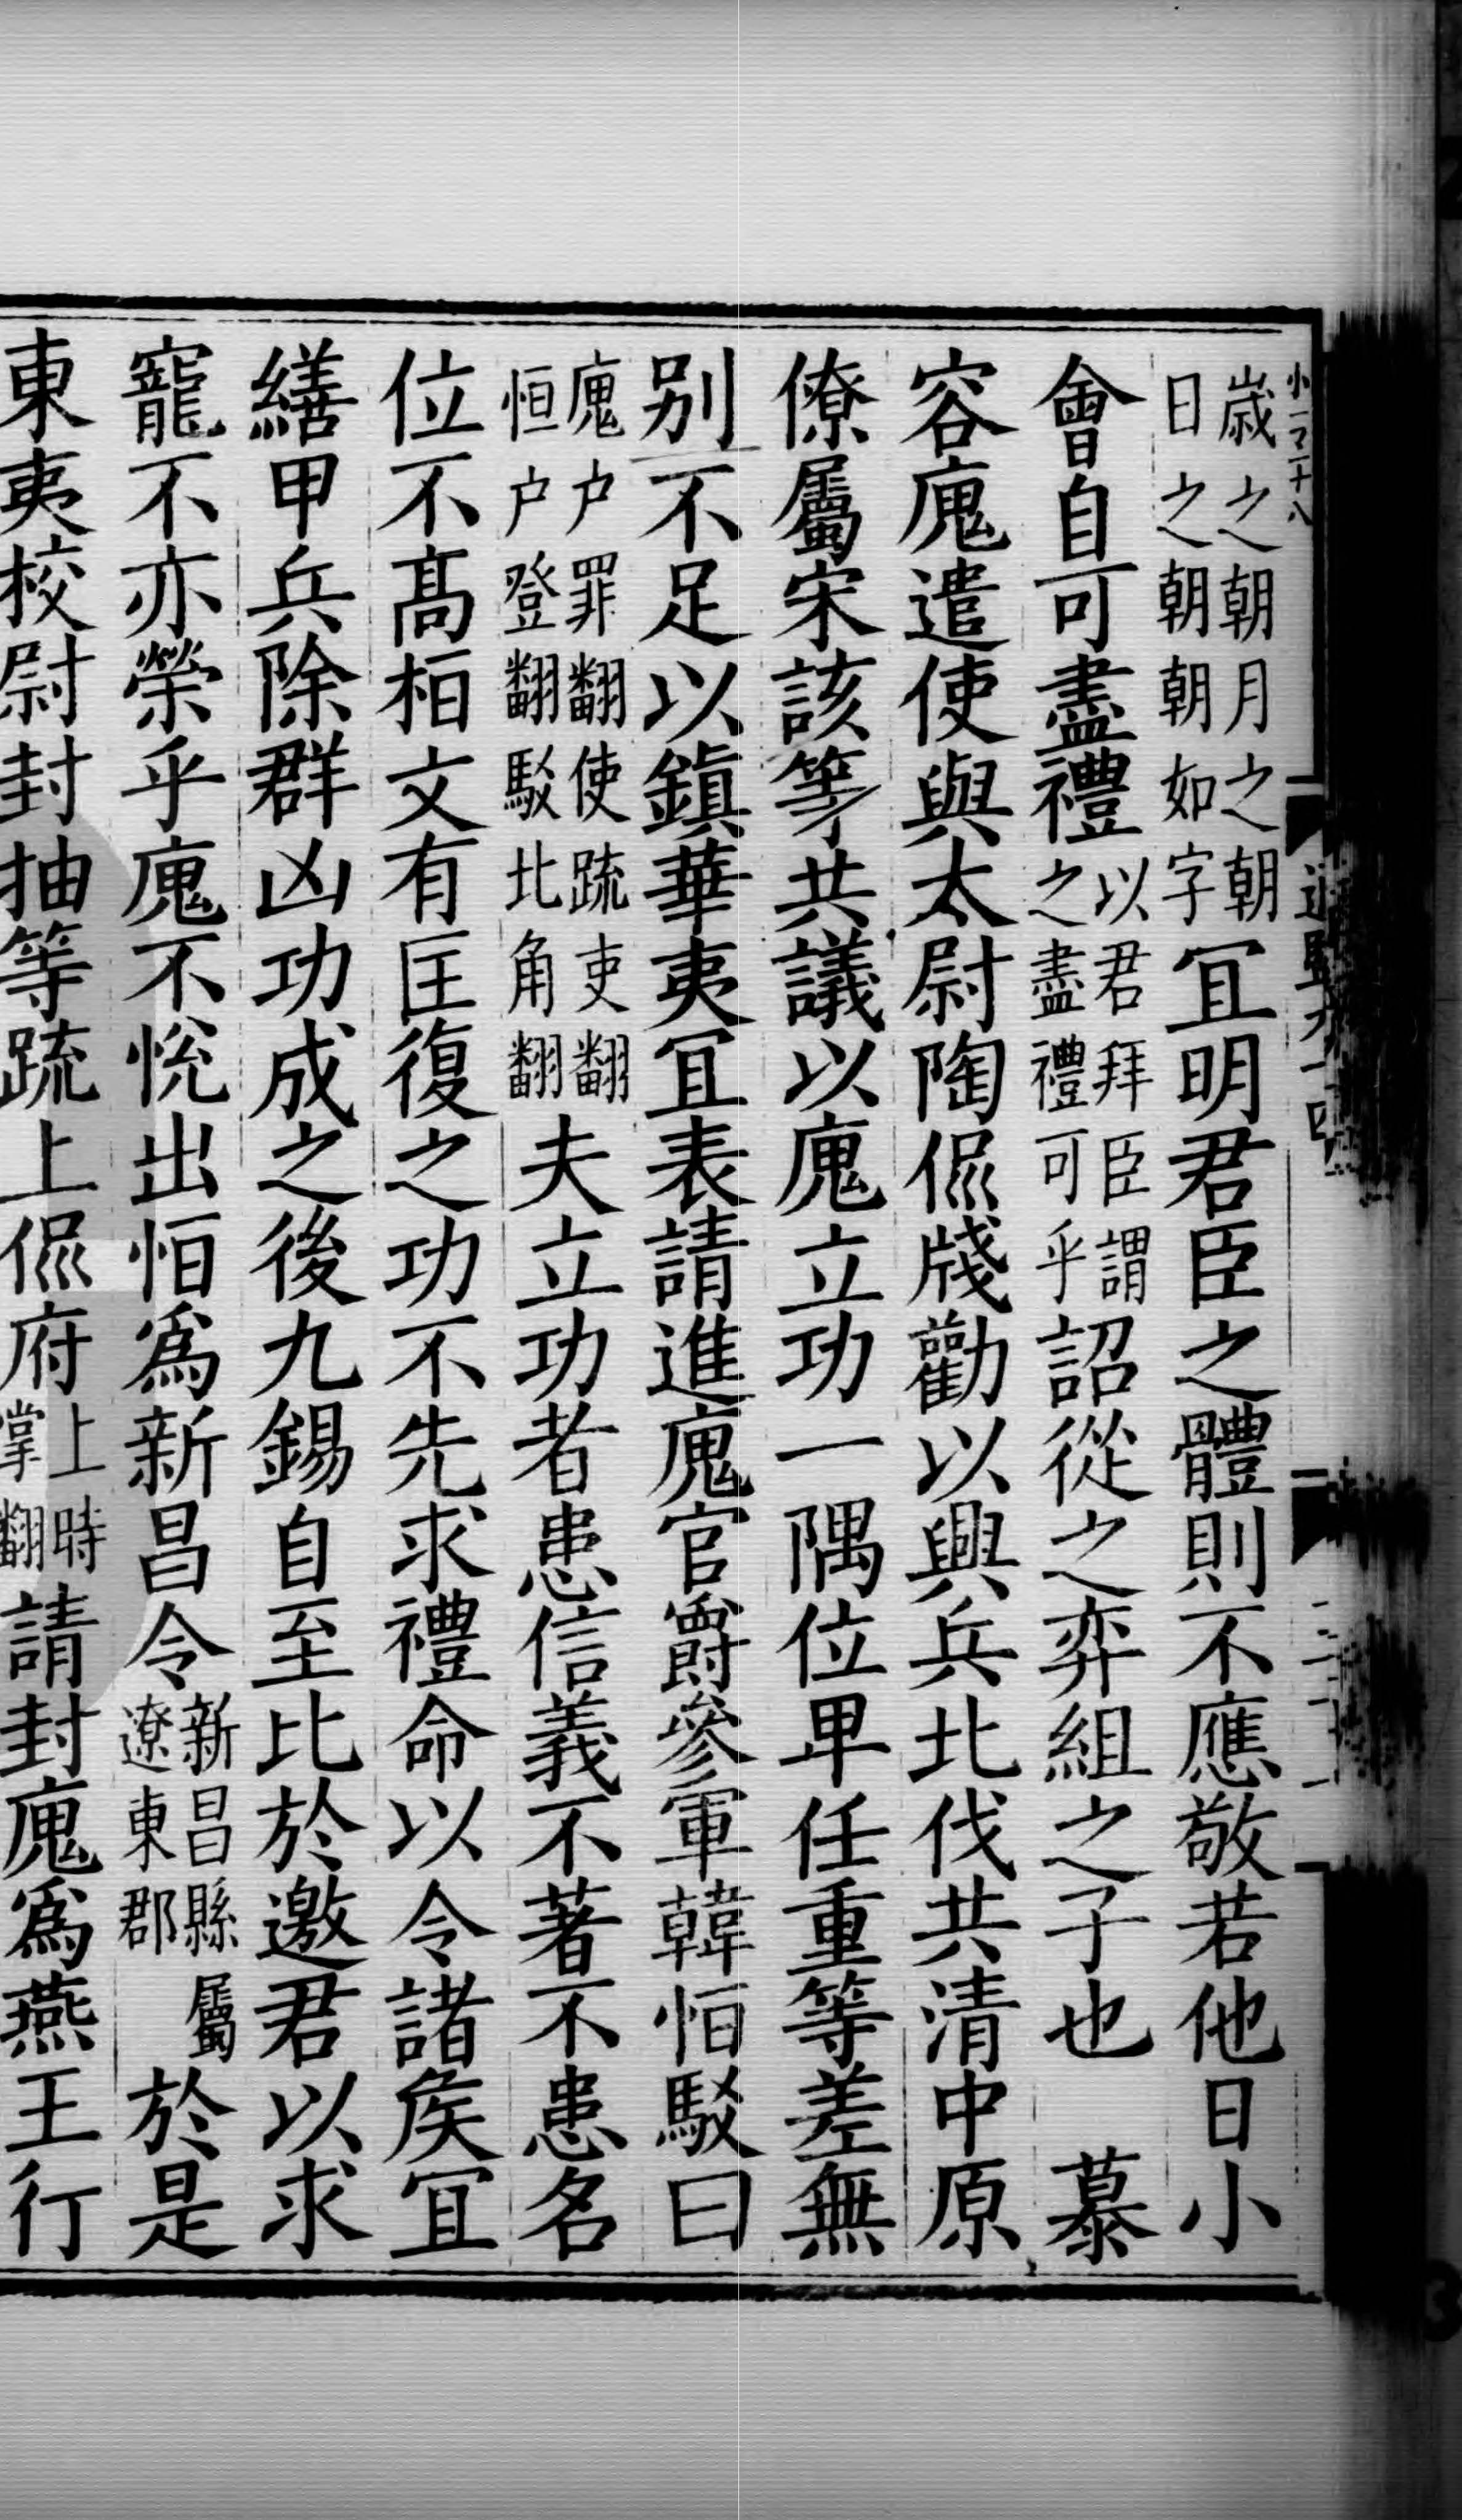 歳之朝月之朝日之朝朝如字宜明君臣之體則不應敬若他日小
會自可盡禮以君拜臣謂之盡禮可乎詔從之弈組之子也 慕
容廆遣使與太尉陶侃牋勸以興兵北伐共清中原
僚屬宋該等共議以廆立功一隅位卑任重等差無
别不足以鎮華夷宜表請進廆官爵參軍韓恒駁曰
廆户罪翻使疏吏翻恒户登翻駮北角翻夫立功者患信義不著不患名
位不髙桓文有匡復之功不先求禮命以令諸侯宜
繕甲兵除群凶功成之後九錫自至比於邀君以求
寵不亦榮乎廆不悅出恒爲新昌令新昌縣屬遼東郡於是
東夷校尉封抽等疏上侃府上時掌翻請封廆爲燕王行